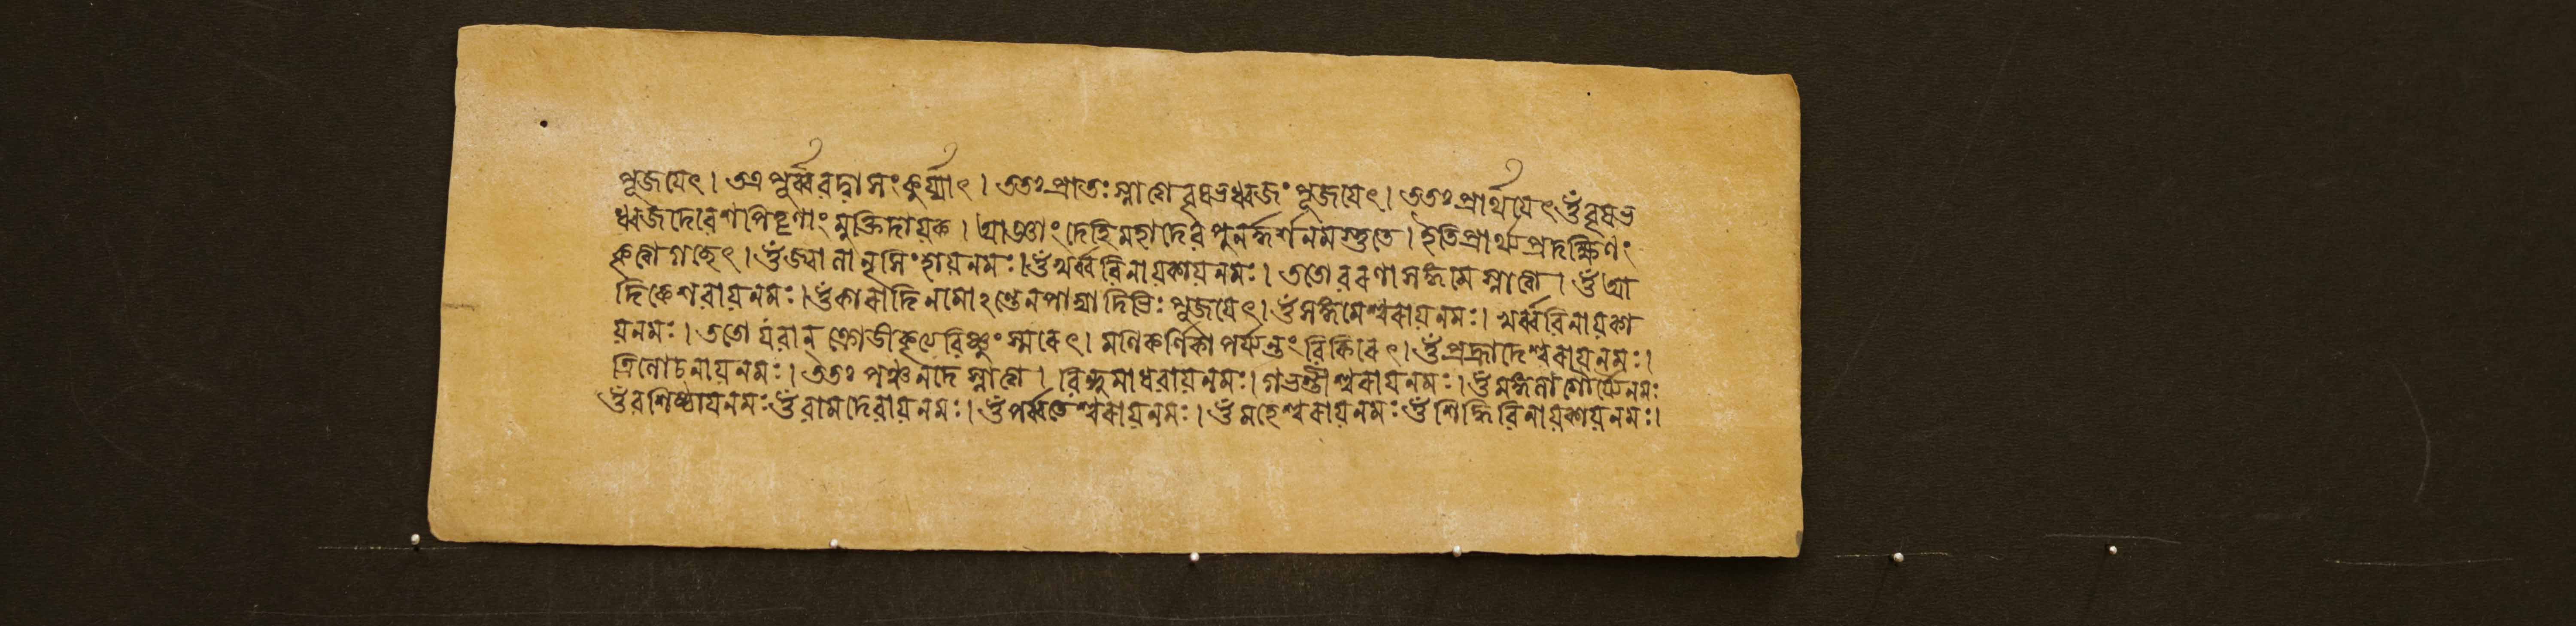 পূজয়েৎ। তত্র পূর্ব্ববদ্বাসং কুর্য্যাৎ। ততঃ প্রাতঃ স্নাত্বো বৃষভধ্বজং পূজয়েৎ। ততঃ প্রার্থয়েৎ ওঁ বৃষভ
ধ্বজদেবেশ পিতৄণাং মুক্তিদায়ক। আজ্ঞাং দেহি মহাদেব পুনর্দ্দর্শনমস্তুতে। ইতি প্রার্থ্য প্রদক্ষিণং
কৃত্বো গচ্ছেৎ। ওঁ জ্বালানৃসিংহায় নমঃ। ওঁ খর্ব্ববিনায়কায় নমঃ। ততো বরণাসঙ্গমে স্নাত্বো। ওঁ আ
দিকেশবায় নমঃ। ওঁকারাদি নমোঽন্তেন পাদ্যাদিভিঃ পূজয়েৎ। ওঁ সঙ্গমেশ্বরায় নমঃ। খর্ব্ববিনায়কা
য় নমঃ। ততো যবান্ ক্রোডীকৃত্য বিষ্ণুং স্মরেৎ। মণিকর্ণিকাপর্য্যন্তং বিকিরেৎ। ওঁ প্রহ্লাদেশ্বরায় নমঃ।
ত্রিলোচনায় নমঃ। ততঃ পঞ্চনদে স্নাত্বো। বিন্দুমাধবায় নমঃ। গভস্তীশ্বরায় নমঃ। ওঁ মঙ্গলাগৌর্য্যৈ নমঃ
ওঁ বশিষ্ঠায় নমঃ ওঁ বামদেবায় নমঃ। ওঁ পর্ব্বতেশ্বরায় নমঃ। ওঁ মহেশ্বরায় নমঃ ওঁ সিদ্ধিবিনায়কায় নমঃ।